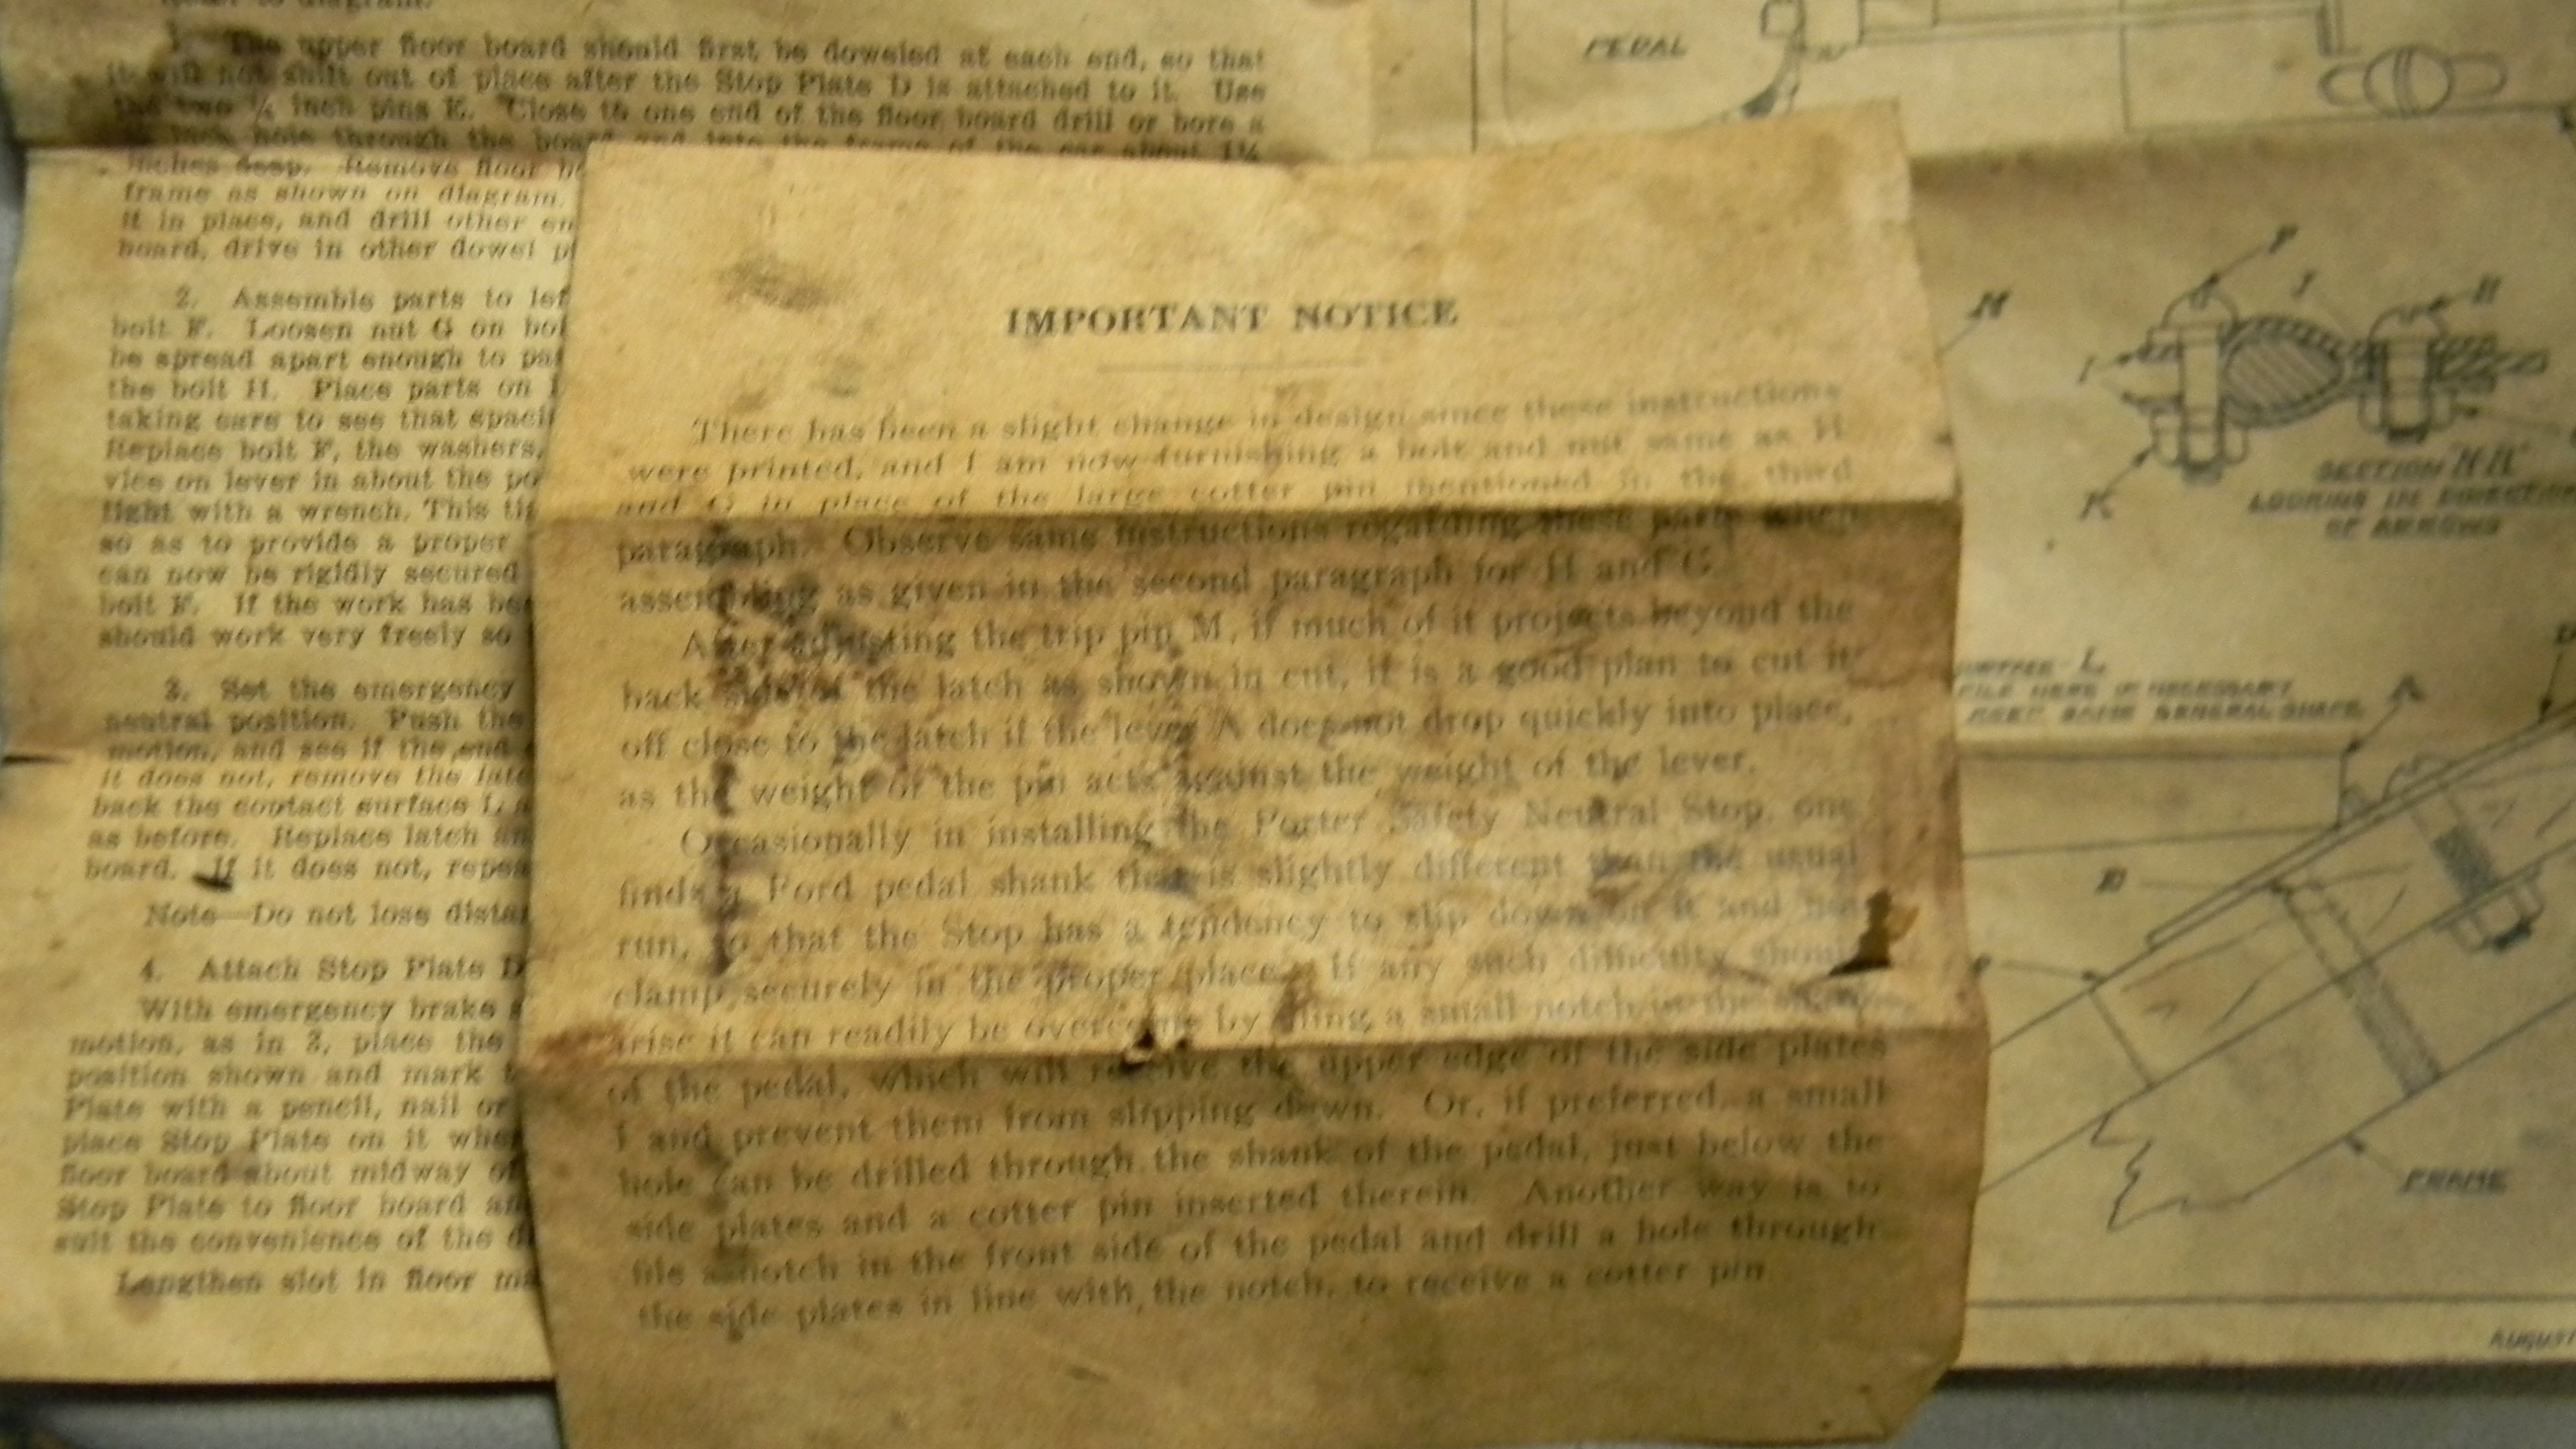 1. The upper floor board should first be doweled at each end, so that
it will not shift out of place after the Stop Plate D is attached to it. Use
the two ¼ inch pins E. Close to one end of the floor board drill or bore a
inch hole through the board and into the frame of the car about 1¼
inches deep. Remove floor
frame as shown on diagram.
it in place, and drill other
board, drive in other dowel
2. Assemble parts to
bolt F. Loosen nut G on
be spread apart enough to
the bolt H. Place parts on
taking care to see that
Replace bolt F, the washers,
vice on lever in about the
tight with a wrench. This
so as to provide a proper
can now be rigidly secured
bolt F. If the work has
should work very freely so
3. Set the emergency
neutral position. Push the
motion, and see if the end
it does not, remove the
back the contact surface L
as before. Replace latch
board. If it does not,
Note—Do not lose
4. Attach Stop Plate D
With emergency brake
motion, as in 3, place the
position shown and mark
Plate with a pencil, nail or
place Stop Plate on it
floor board about midway
Stop Plate to floor board
suit the convenience of the
Lengthen slot in floor
IMPORTANT NOTICE
There has been a slight change in design since these instructions
were printed, and I am now furnishing a bolt and nut same as H
and G in place of the large cotter pin mentioned in the third
paragraph. Observe same instructions regarding these parts when
assembling as given in the second paragraph for H and G.
After adjusting the trip pin M, if much of it projects beyond the
back side of the latch as shown in cut, it is a good plan to cut it
off close to the latch if the lever A does not drop quickly into place,
as the weight of the pin acts against the weight of the lever.
Occasionally in installing the Porter Safety Neutral Stop, one
finds a Ford pedal shank that is slightly different than the usual
run, so that the Stop has a tendency to slip down on it and not
clamp securely in the proper place. If any such difficulty should
arise it can readily be overcome by filing a small notch in the shank
of the pedal, which will receive the upper edge of the side plates
I and prevent them from slipping down. Or, if preferred, a small
hole can be drilled through the shank of the pedal, just below the
side plates and a cotter pin inserted therein. Another way is to
file a notch in the front side of the pedal and drill a hole through
the side plates in line with the notch, to receive a cotter pin.
PEDAL
M
F
I
H
I
K
SECTION "H H"
LOOKING IN DIRECTION
OF ARROWS
L
FILE HERE IF NECESSARY
KEEP SAME GENERAL SHAPE
A
D
E
FRAME
AUGUST